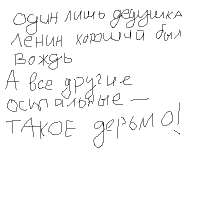 один лишь дедушка
Ленин хороший был
вождь
А все другие
остальные —
ТАКОЕ дерьмо!